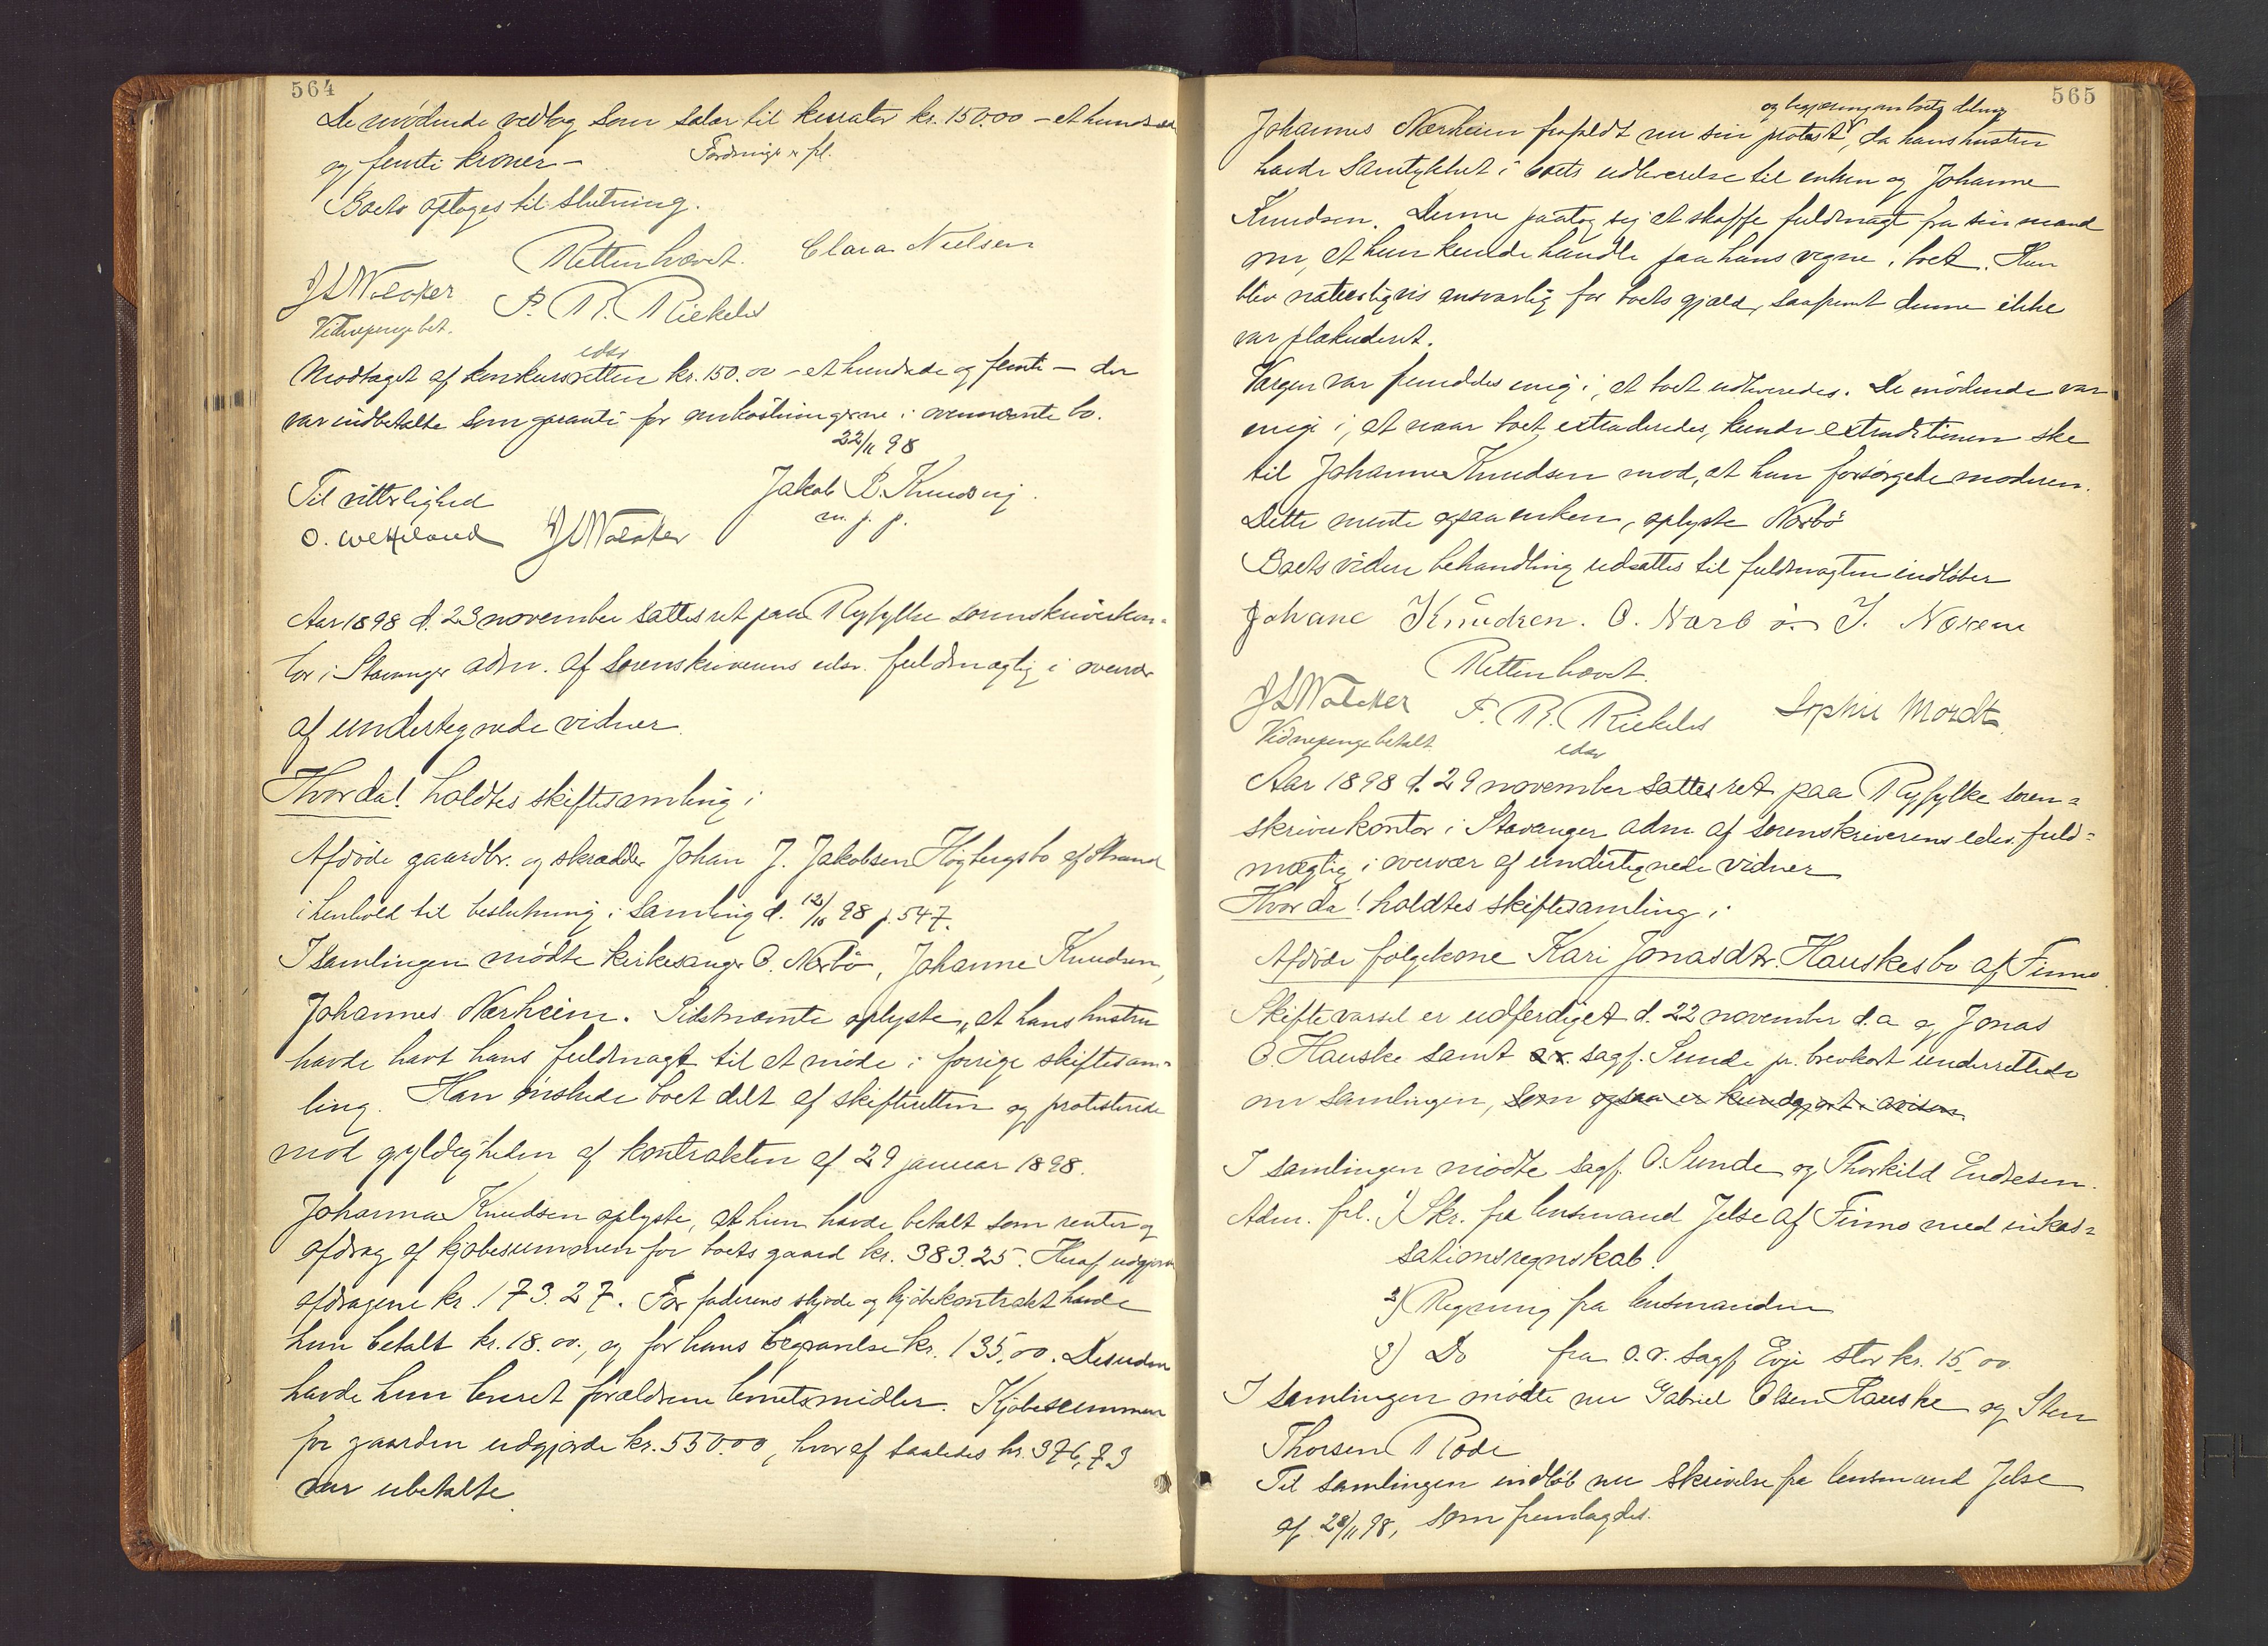 564
De mödende vedtog som salær til kurator kr. 150.00 – et hundrede
og femti kroner –
Boets optoges til slutning.
Retten hævet. Clara Nielsen
JLWalcker P. R. Riekeles
Vidnepenge bet.
edsv
Modtaget af konkursretten kr. 150.00 – et hundrede og femti – der
var indbetalte som garanti for omkostningerne i ovennævnte bo.
22/11 98
Til vitterlighed Jakob B.
m. p. p.
O. JLWalcker
Aar 1898 d. 23 november sattes ret paa Ryfylke sorenskriverkon-
tor i Stavanger adm. af sorenskriverens edsv. fuldmægtig i overvær
af undertegnede vidner.
Hvor da! holdtes skiftesamling i
Afdøde gaardbr. og skrædder Johan J. Jakobsen Høgbergsbo af Strand
i henhold til beslutning i samling d. 12/10 98 p. 547.
I samlingen mödte kirkesanger O. Nærbö, Johanne Knudsen,
Johannes Nærheim. Sidstnævnte oplyste, at hans hustru
havde havt hans fuldmagt til at møde i forrige skiftesam-
ling. Han ønskede boet delt af skifteretten og protesterede
mod gyldigheden af kontrakten af 29 januar 1898.
Johanne Knudsen oplyste, at hun havde betalt som renter og
afdrag af kjøbesummen for boets gaard kr. 383.25. Heraf udgjorde
afdragene kr. 173.27. For faderens skjøde og kjøbekontrakt havde
hun betalt kr. 18.00, og for hans begravelse kr. 135,00. Desuden
havde hun leveret forældrene levnetsmidler. Kjøbesummen
for gaarden udgjorde kr. 550.00, hvoraf saaledes kr. 376,73
var ubetalte.
565
og begjæring om boets deling
Johannes Nærheim frafaldt nu sin protest, da hans hustru
havde samtykket i boets udleverelse til enken og Johanne
Knudsen. Denne paatog sig at skaffe fuldmagt fra sin mand
om, at hun kunde handle paa hans vegne i boet. Han
blev naturligvis ansvarlig for boets gjæld, saafremt denne ikke
var plakuderet.
var fremdeles enig i, at boet udleveredes. De mödende var
enige i, at naar boet extraderedes, kunde extraditionen ske
til Johanne Knudsen mod, at hun forsörgede moderen.
Dette mente ogsaa enken, oplyste Nærbö
Boets videre behandling udsattes til fuldmagten indløber
Johane Knudsen. O. Nærbö. J. Nærem
Retten hævet.
JLWalcker P. R. Riekeles Sophie Mordt
Vidnepenge betalt edsv
Aar 1898 d. 29 november sattes ret paa Ryfylke soren=
skriverkontor i Stavanger adm af sorenskriverens edsv. fuld=
mægtig i overvær af undertegnede vidner
Hvor da! holdtes skiftesamling i
Afdøde følgekone Kari Jonasdtr. Hauskesbo af Finnø
Skiftevarsel er udfærdiget d. 22 november d.a og Jonas
O. Hauske samt sagf. Sunde pr. brevkort underrettede
om samlingen, som ogsaa er kundgjort i avisen
I samlingen mödte sagf. O. Sunde og Thorkild Endresen.
Adm. frl. 1) Skr. fra lensmand Jelse af Finnø med inkas=
sationsregnskab.
2) Regning fra lensmanden
3) Do fra o.r. sagf. Evje stor kr. 15,00.
I samlingen mødte nu Gabriel Olsen Hauske og Sten
Thorsen Rode
Til samlingen indløb nu skrivelse fra lensmand Jelse
af 28/11 98, som fremlagdes.